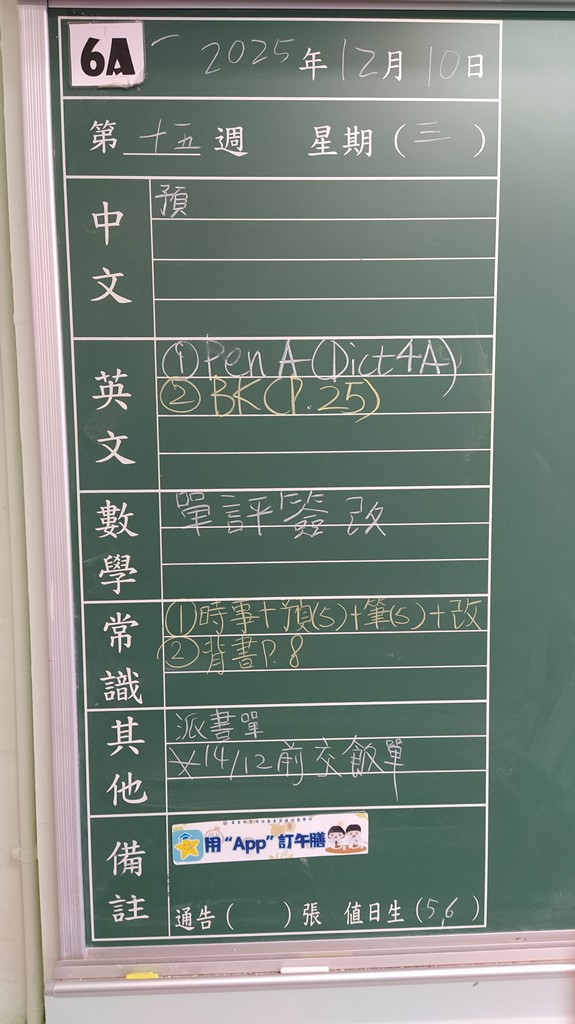 6A
2025年12月10日
第十五週 星期(三)
中文
預
英文
①Pen A (Dict 4A)
②BK(P.25)
數學
單評簽改
常識
①時事+預(5)+筆(5)+改
②背書P.8
其他
派書單
※14/12前交飯單
備註
用“App”訂午膳
通告( )張 值日生(5,6)